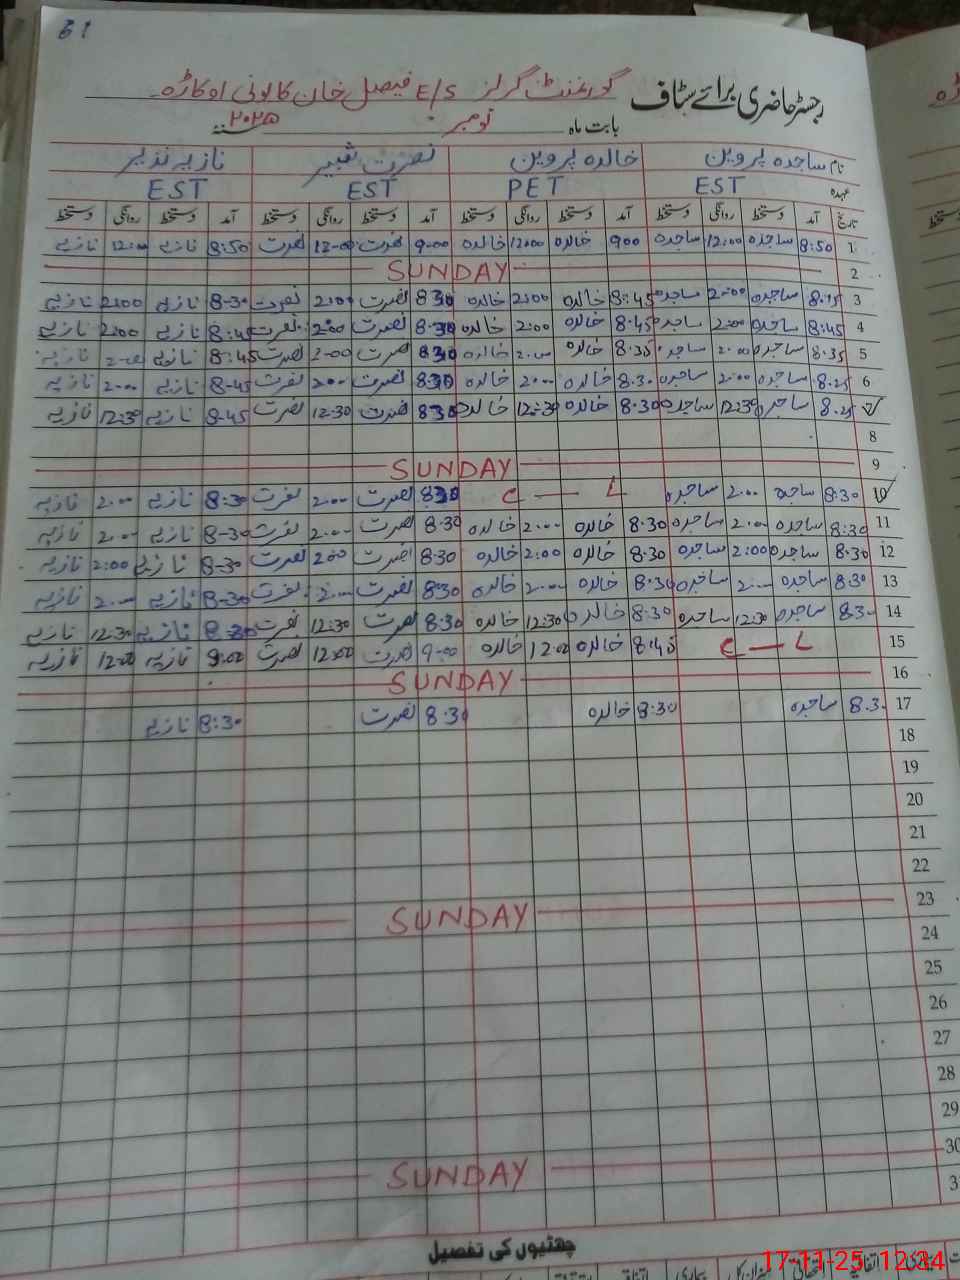 19
رجسٹر حاضری برائے سٹاف گورنمنٹ گرلز E/S فیصل خان کالونی اوکاڑہ
بابت ماہ نومبر سنہ ۲۰۲۵
نام ساجدہ پروین خالدہ پروین نصرت شبیر نازیہ نذیر
عہدہ EST PET EST EST
تاریخ آمد دستخط روانگی دستخط آمد دستخط روانگی دستخط آمد دستخط روانگی دستخط آمد دستخط روانگی دستخط
1 8:50 ساجدہ 12:00 ساجدہ 900 خالدہ 12:00 خالدہ 9-00 نصرت 12-00 نصرت 8:50 نازیہ 12:00 نازیہ
2 SUNDAY
3 8.15 ساجدہ 2:00 ساجدہ 8:45 خالدہ 2:00 خالدہ 830 نصرت 2:00 نصرت 8-30 نازیہ 2:00 نازیہ
4 8:45 ساجدہ 2:00 ساجدہ 8.45 خالدہ 2:00 خالدہ 8.30 نصرت 2:00 نصرت 8:45 نازیہ 2:00 نازیہ
5 8.35 ساجدہ 2.00 ساجدہ 8.35 خالدہ 2.00 خالدہ 830 نصرت 2-00 نصرت 8:45 نازیہ 2-00 نازیہ
6 8.25 ساجدہ 2:00 ساجدہ 8.30 خالدہ 2.00 خالدہ 830 نصرت 2.00 نصرت 8-45 نازیہ 2.00 نازیہ
7 8.25 ساجدہ 12:30 ساجدہ 8.30 خالدہ 12:30 خالدہ 830 نصرت 12.30 نصرت 8.45 نازیہ 12:30 نازیہ
8
9 SUNDAY
10 8:30 ساجدہ 2.00 ساجدہ C — L 830 نصرت 2.00 نصرت 8:30 نازیہ 2.00 نازیہ
11 8:30 ساجدہ 2.00 ساجدہ 8.30 خالدہ 2.00 خالدہ 8.30 نصرت 2.00 نصرت 8-30 نازیہ 2.00 نازیہ
12 8.30 ساجدہ 2:00 ساجدہ 8.30 خالدہ 2:00 خالدہ 8.30 نصرت 200 نصرت 8-30 نازیہ 2:00 نازیہ
13 8.30 ساجدہ 2.00 ساجدہ 8.30 خالدہ 2.00 خالدہ 8.30 نصرت 2.00 نصرت 8-30 نازیہ 2.00 نازیہ
14 8.30 ساجدہ 12:30 ساجدہ 8.30 خالدہ 12:30 خالدہ 8.30 نصرت 12:30 نصرت 8-30 نازیہ 12:30 نازیہ
15 C — L 8:45 خالدہ 12:00 خالدہ 9-00 نصرت 12:00 نصرت 9:00 نازیہ 12:00 نازیہ
16 SUNDAY
17 8.30 ساجدہ 8:30 خالدہ 8.30 نصرت 8:30 نازیہ
18
19
20
21
22
23 SUNDAY
24
25
26
27
28
29
30 SUNDAY
31
چھٹیوں کی تفصیل
17-11-25 12:24